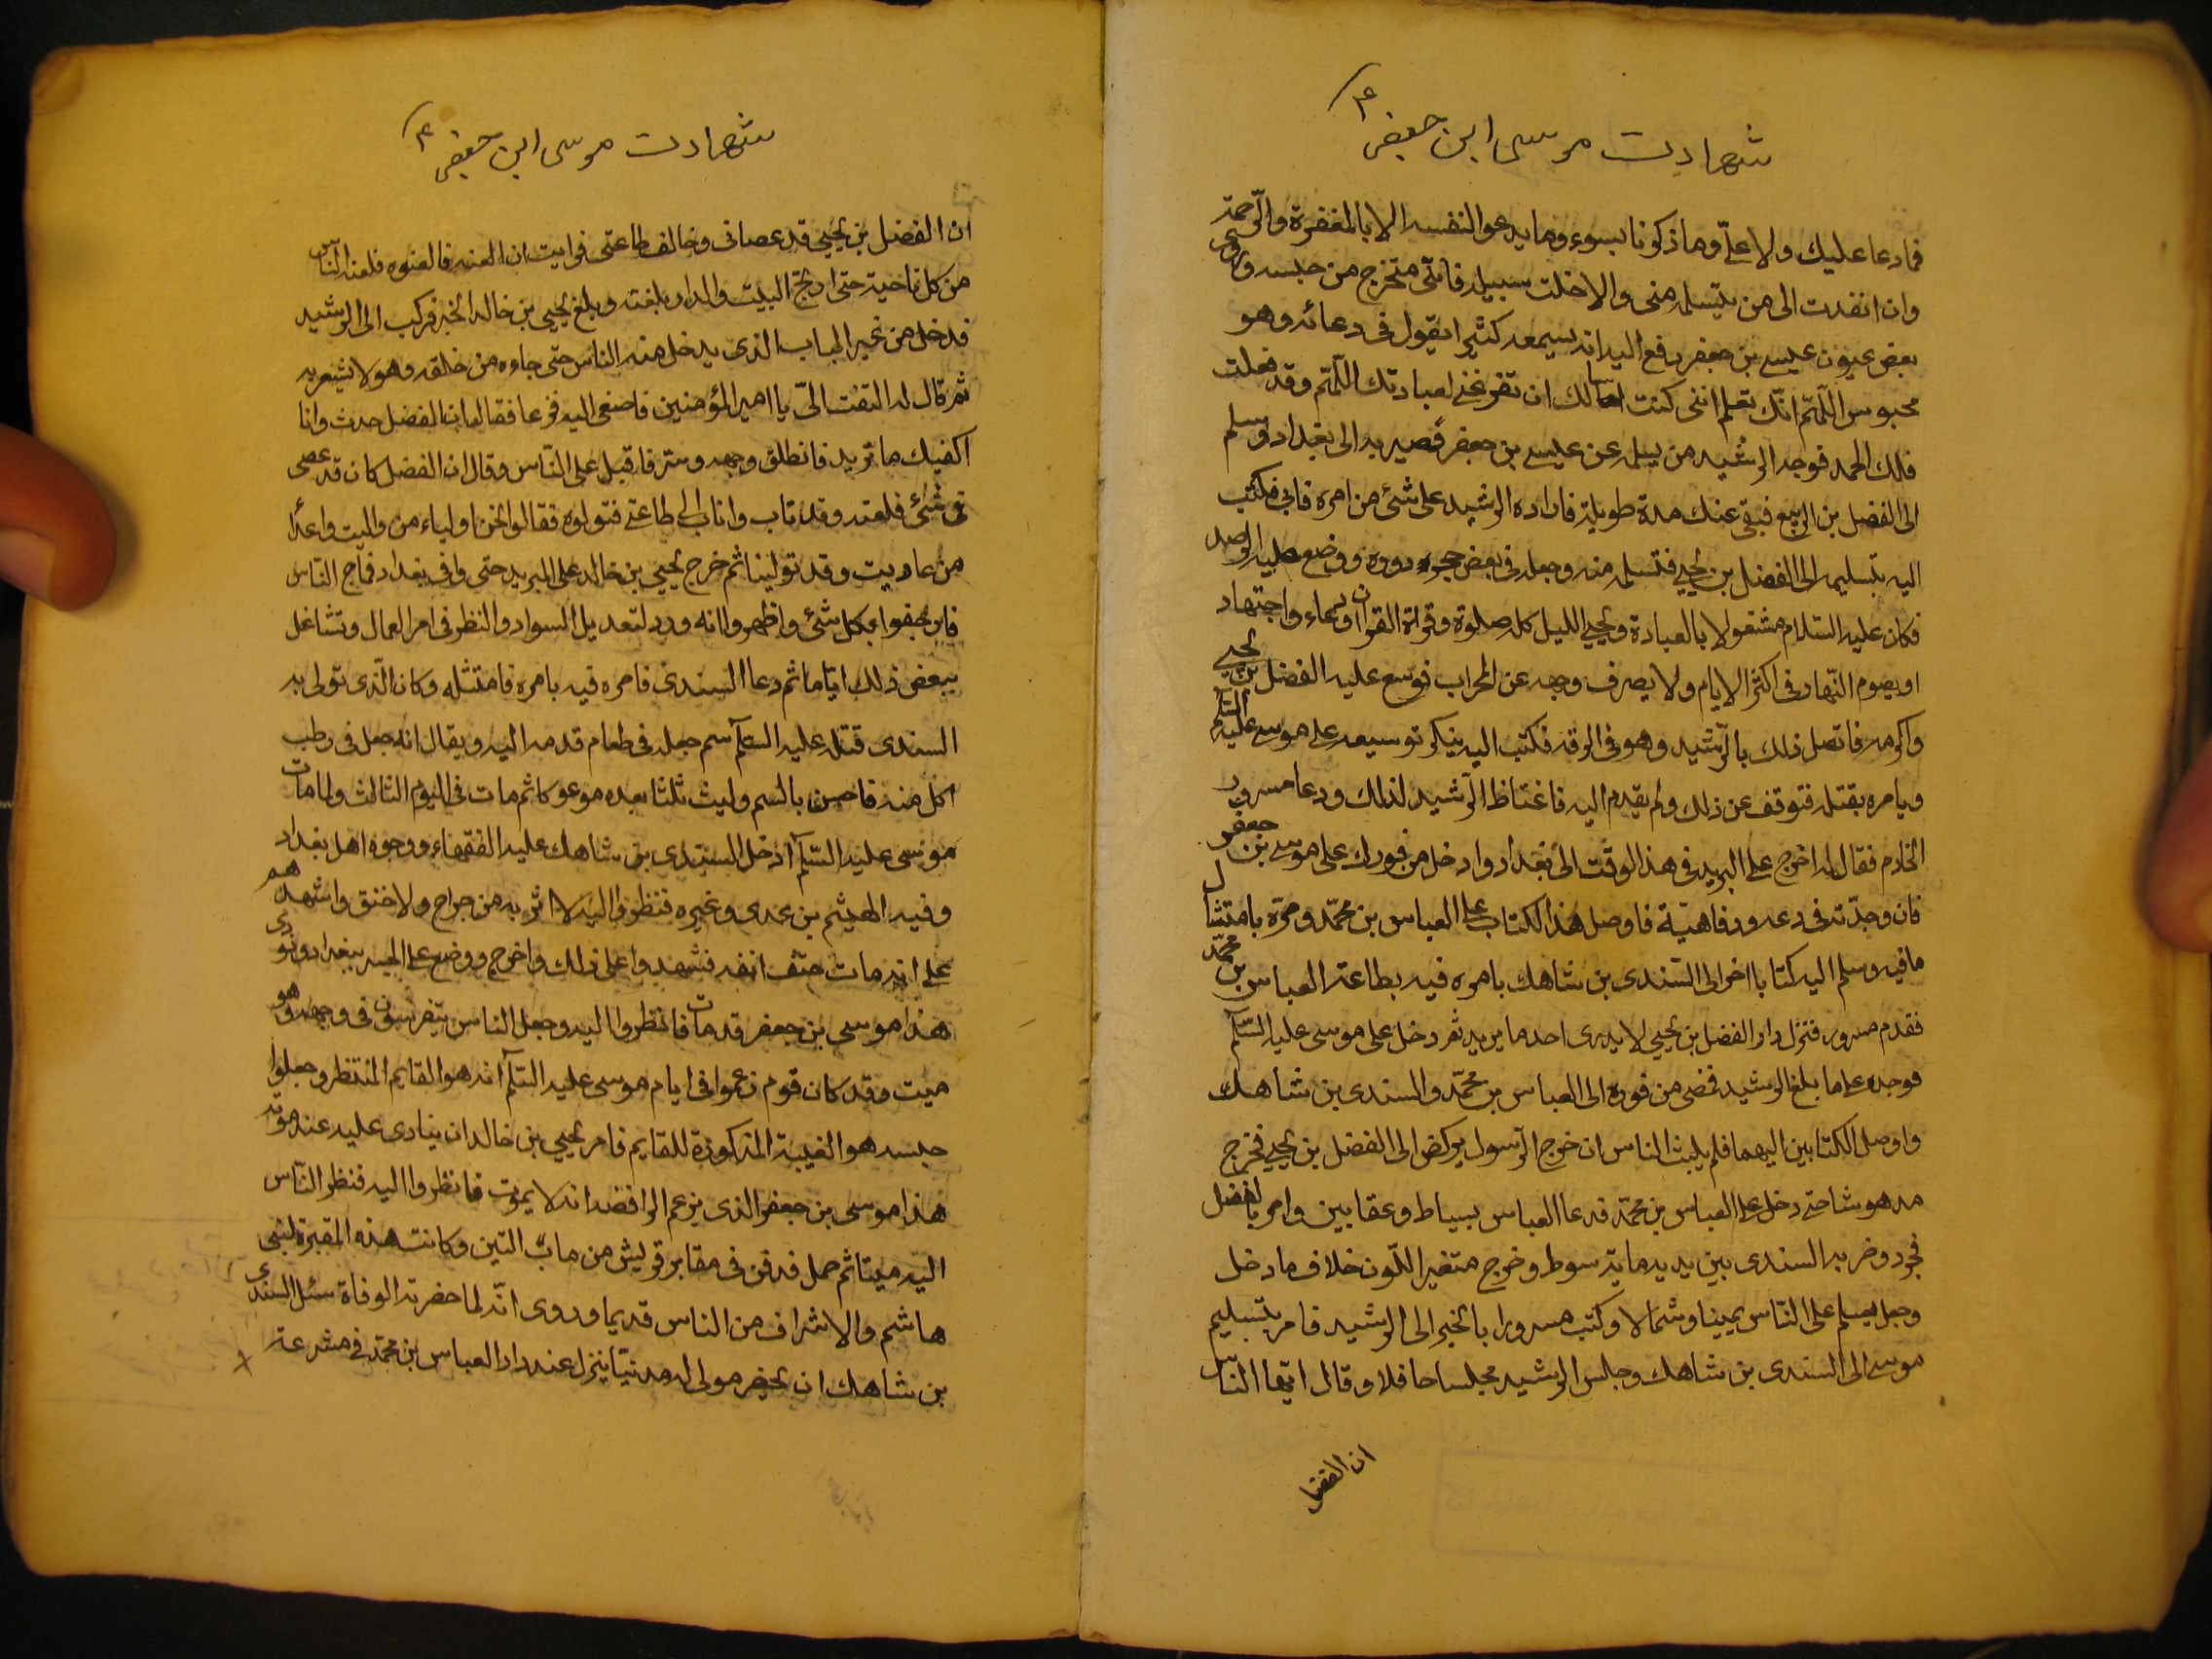 شهادت موسی ابن جعفر ع
فمادعا عليك ولا علىّ وما ذكرنا بسوء وما يدعو النفسه الا بالمغفرة والرّحمة
وان انفدت الى من يتسلمه منى والا خلت سبيله فانّى متخرج من حبسه وروى
بعض عيون عيسى بن جعفر رفع اليه انه يسمعه كثيرا يقول فى دعائه وهو
محبوس اللّهم انّك تعلم اننى كنت اسالك ان تفرغنى لعبادتك اللّهم وقد فعلت
فلك الحمد فوجه الرشيد من يسلمه عن عيسى بن جعفر فصير به الى بغداد وسلم
الى الفضل بن الربيع فبقى عنك مدة طويلة فاراده الرشيد على شئ من امره فابى فكتب
اليه بتسليمه الى الفضل بن يحيى فتسلمه منه وجعله فى بعض حجره دوره ووضع عليه الرصد
فكان عليه السّلام مشغولا بالعبادة ويحيى الليل كله صلوة وقراة القران ودعاء واجتهاد
او يصوم النّهار فى اكثر الايام ولا يصرف وجهه عن المحراب فوسع عليه الفضل بن يحيى
واكرمه فاتصل ذلك بالرّشيد وهو فى الرقه فكتب اليه ينكر توسيعه على موسى عليه السّلم
ويامره بقتله فتوقف عن ذلك ولم يقدم اليه فاغتاظ الرّشيد لذلك ودعا مسرور
الخادم فقال له اخرج على البريد فى هذ الوقت الى بغداد وادخل من فورك على موسى بن جعفر
فان وجدّته فى دعه ورفاهيّة فاوصل هذ الكتاب على العباس بن محمّد ومرّه بامتثال
ما فيه وسلم اليه كتابا اخر الى السّندى بن شاهك يامره فيه بطاعة العباس بن محمّد
فقدم مسرور فنزل دار الفضل بن يحيى لا يدرى احد ما يريد ثم دخل على موسى عليه السّلم
فوجده على ما بلغ الرشيد فمضى من فوره الى العباس بن محمّد والسندى بن شاهك
واوصل الكتابين اليهما فلم يلبث الناس ان خرج الرّسول يركض الى الفضل بن يحيى فخرج
مدهوشا حتى دخل على العباس بن محمّد فدعا العباس بسياط وعقابين وامر بالفضل
فجرد وضربه السندى بين يديه مايه سوط وخرج متغير اللّون خلاف ما دخل
وجعل يسلم على النّاس يمينا وشمالا وكتب مسرورا بالخبر الى الرشيد فامر بتسليم
موسى الى السندى بن شاهك وجلس الرشيد مجلسا حافلا وقال ايّها النّاس
ان الفضل
شهادت موسی ابن جعفر ع
ان الفضل بن يحيى قد عصانى وخالف طاعتى فرايت ان العنه فالعنوه فلعنه النّاس
من كل ناحية حتى ارتج البيت والدار بلغته وبلغ يحيى بن خالد الخبر فركب الى الرشيد
فدخل من غير الباب الذى يدخل منه الناس حتى جاوه من خلقه وهو لا يشعر به
ثم قال له التفت الىّ يا امير المؤمنين فاصغى اليه فزعا فقال ان الفضل حدث وانا
اكفيك ما تريد فانطلق وجهه وسر فاقبل على النّاس وقال ان الفضل كان قد عصى
فى شئ فلعنته وقد تاب واناب الى طاعتى فتولوه فقالوا نحن اولياء من واليت واعداء
من عاديت وقد تولينا ثم خرج يحيى بن خالد على البريد حتى وافى بغداد فماج النّاس
فارجفوا بكل شئ واظهروا انه ورد لتعديل السواد والنظر فى امر العمال وتشاغل
ببعض ذلك ايّاما ثم دعا السندى فامره فيه بامره فامتثله وكان الّذى تولى به
السندى قتله عليه السّلم سم جعله فى طعام قدمه اليه ويقال انه جعل فى رطب
اكل منه فاحس بالسم ولبث ثلثا بعده موعوكا ثم مات فى اليوم الثالث ولما مات
موسى عليه السّلم ادخل السندى بن شاهك عليه الفقهاء ووجوه اهل بغداد
وفيه الهيثم بن عدى وغيره فنظروا اليه لا اثر به من جراح ولا خنق واشهدهم
على انه مات حتف انفه فشهدوا على ذلك واخرج ووضع على الجسر ببغداد ونودى
هذا موسى بن جعفر قد مات فانظروا اليه وجعل الناس يتفرسون فى وجهه وهو
ميت وقد كان قوم زعموا فى ايام موسى عليه السّلم انه هو القايم المنتظر وجعلوا
حبسه هو الغيبة المذكورة للقايم فامر يحيى بن خالد ان ينادى عليه عند موته
هذا موسى بن جعفر الذى يزعم الرافضه انه لا يموت فانظروا اليه فنظر النّاس
اليه ميتا ثم حمل فدفن فى مقابر قريش من باب التين وكانت هذه المقبرة لبنى
هاشم والاشراف من الناس قديما وروى انّه لما حضرته الوفاة سئل السندى
بن شاهك ان يحضر مولى له مدنيّا ينزل عند دار العباس بن محمّد فى مشرعة